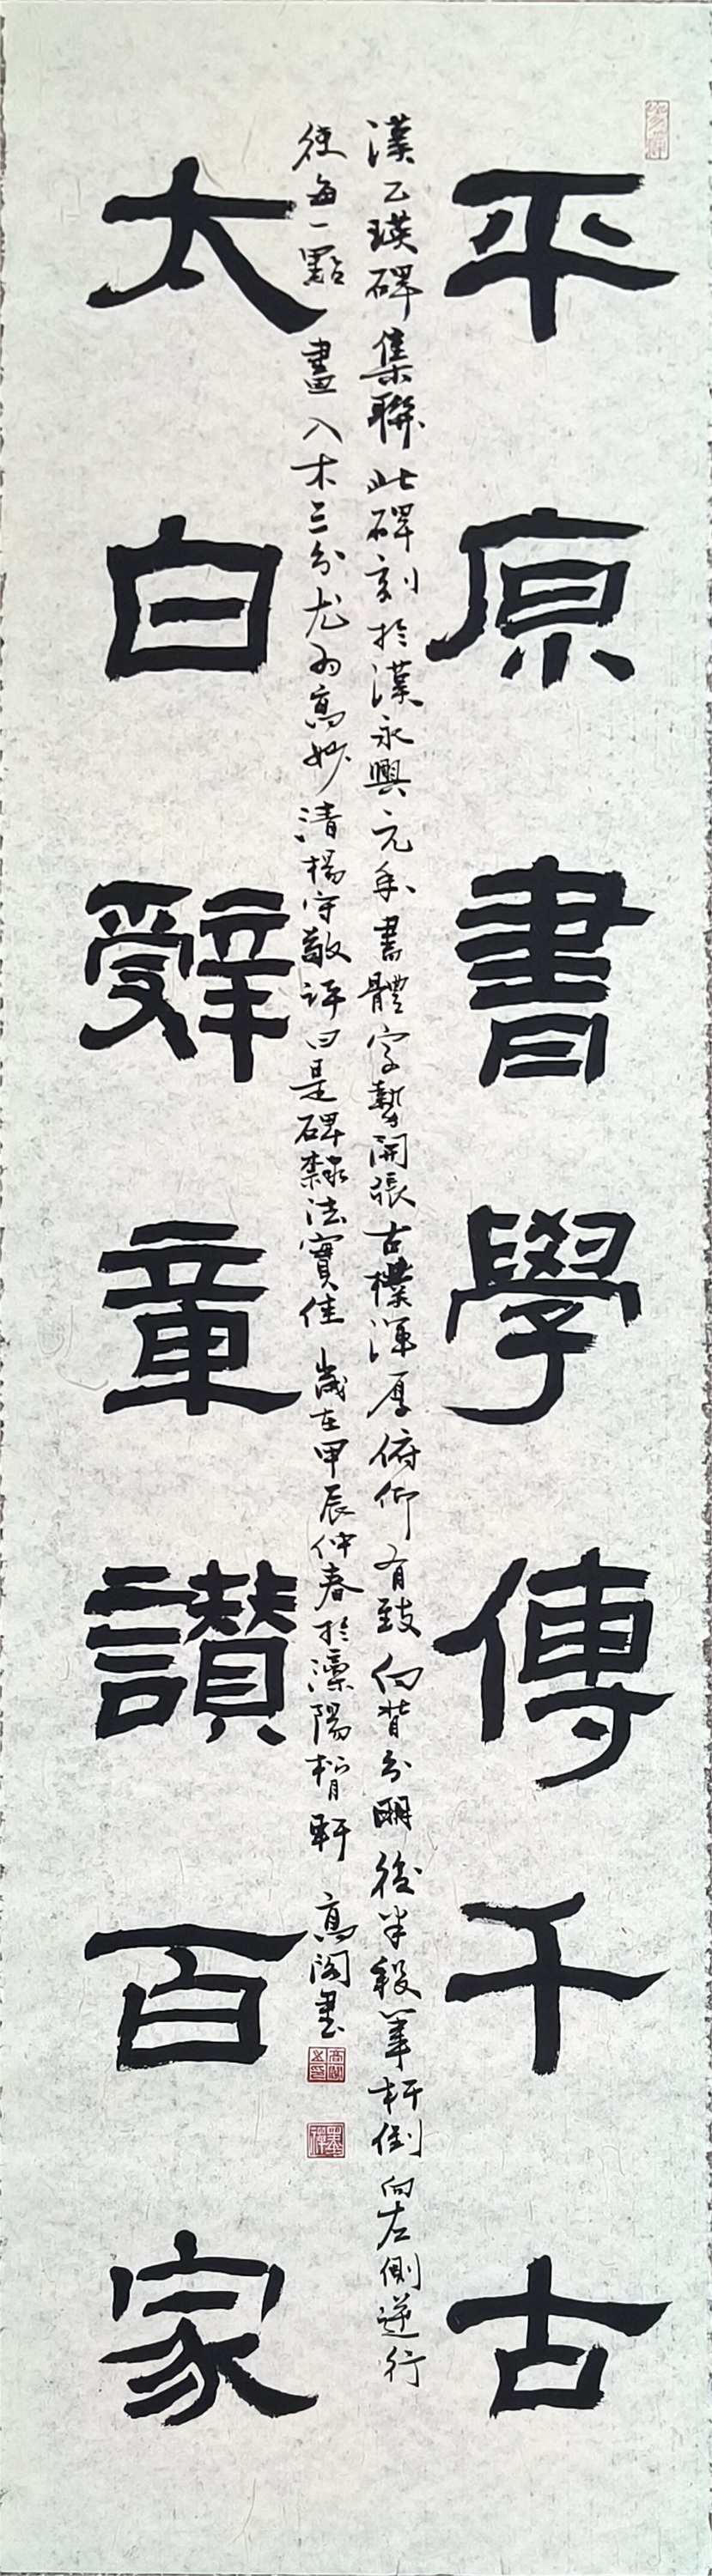 平原書學傳千古
漢乙瑛碑集聯此碑刻於漢永興元年書體字勢開張古樸渾厚俯仰有致向背分明後半段筆杆倒向左側逆行
使每一點畫入木三分尤為高妙清楊守敬評曰是碑隸法實佳歲在甲辰仲春於濼陽榰軒高閣書
太白辭章讚百家